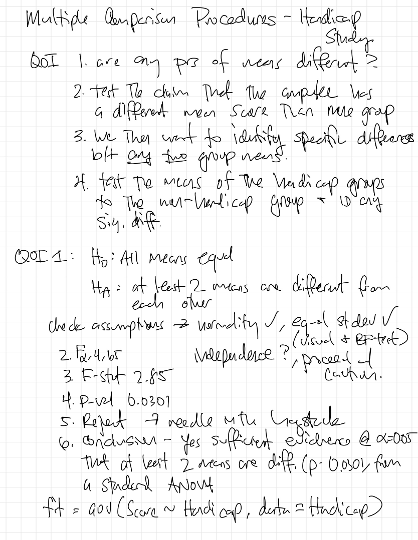 Multiple Comparison Procedures - Handicap
Study
QOI 1. are any prs of means different?
2. test the claim that the amputee has
a different mean score than none group
3. we then want to identify specific differences
b/t any two group means.
4. test the means of the handicap groups
to the non-handicap group + ID any
sig. diff.
QOI 1: H0: All means equal
HA: at least 2 means are different from
each other
check assumptions → normality ✓, equal st dev ✓
(visual + BF test)
Independence?, proceed w/
caution.
2. F
3. F-stat 2.85
4. p-val 0.0301
5. Reject →
6. Conclusion - Yes sufficient evidence @ α=0.05
that at least 2 means are diff. (p=0.0301, from
a standard ANOVA
fit = aov(Score ~ Handicap, data = Handicap)